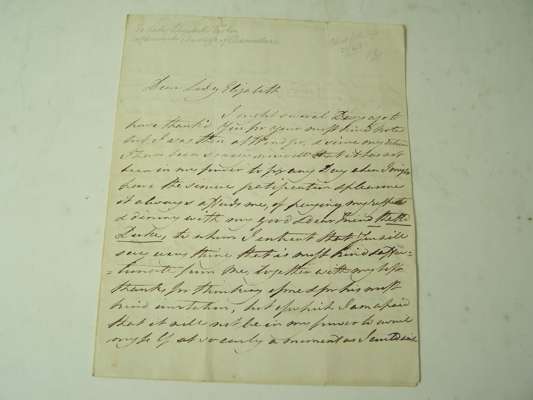 To Lady Elizabeth
Dear Lady Elizabeth
I ought several Days ago to
have thank'd You for your most kind note
but I was then at Windsor, & since my return
I have been so unwell that it has not
been in my power to fix any Day when I might
have the sincere gratification & pleasure
it always affords me, of paying my respects
& dining with my good & dear Friend the
Duke, to whom I entreat that You will
say every thing that is most kind & affec-
-tionate from me, together with my best
thanks for thinking of me & for his most
kind invitation, but of which I am afraid
that it will not be in my power to avail
myself at so early a moment as I could wish